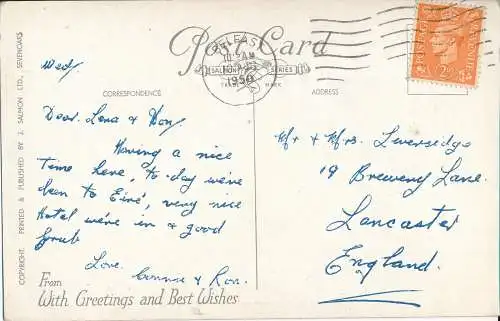 Post Card
BELFAST
1950
SALMON SERIES
TRADE MARK
CORRESPONDENCE
ADDRESS
COPYRIGHT. PRINTED & PUBLISHED BY J. SALMON LTD., SEVENOAKS
Wed/
Dear Lena & Hon/
Having a nice
time here, to-day we've
been to Eire, very nice
hotel we're in & good
grub
Love.
Connie & Ron.
From
With Greetings and Best Wishes
Mr & Mrs Liversidge
19 Brewery Lane
Lancaster
England.